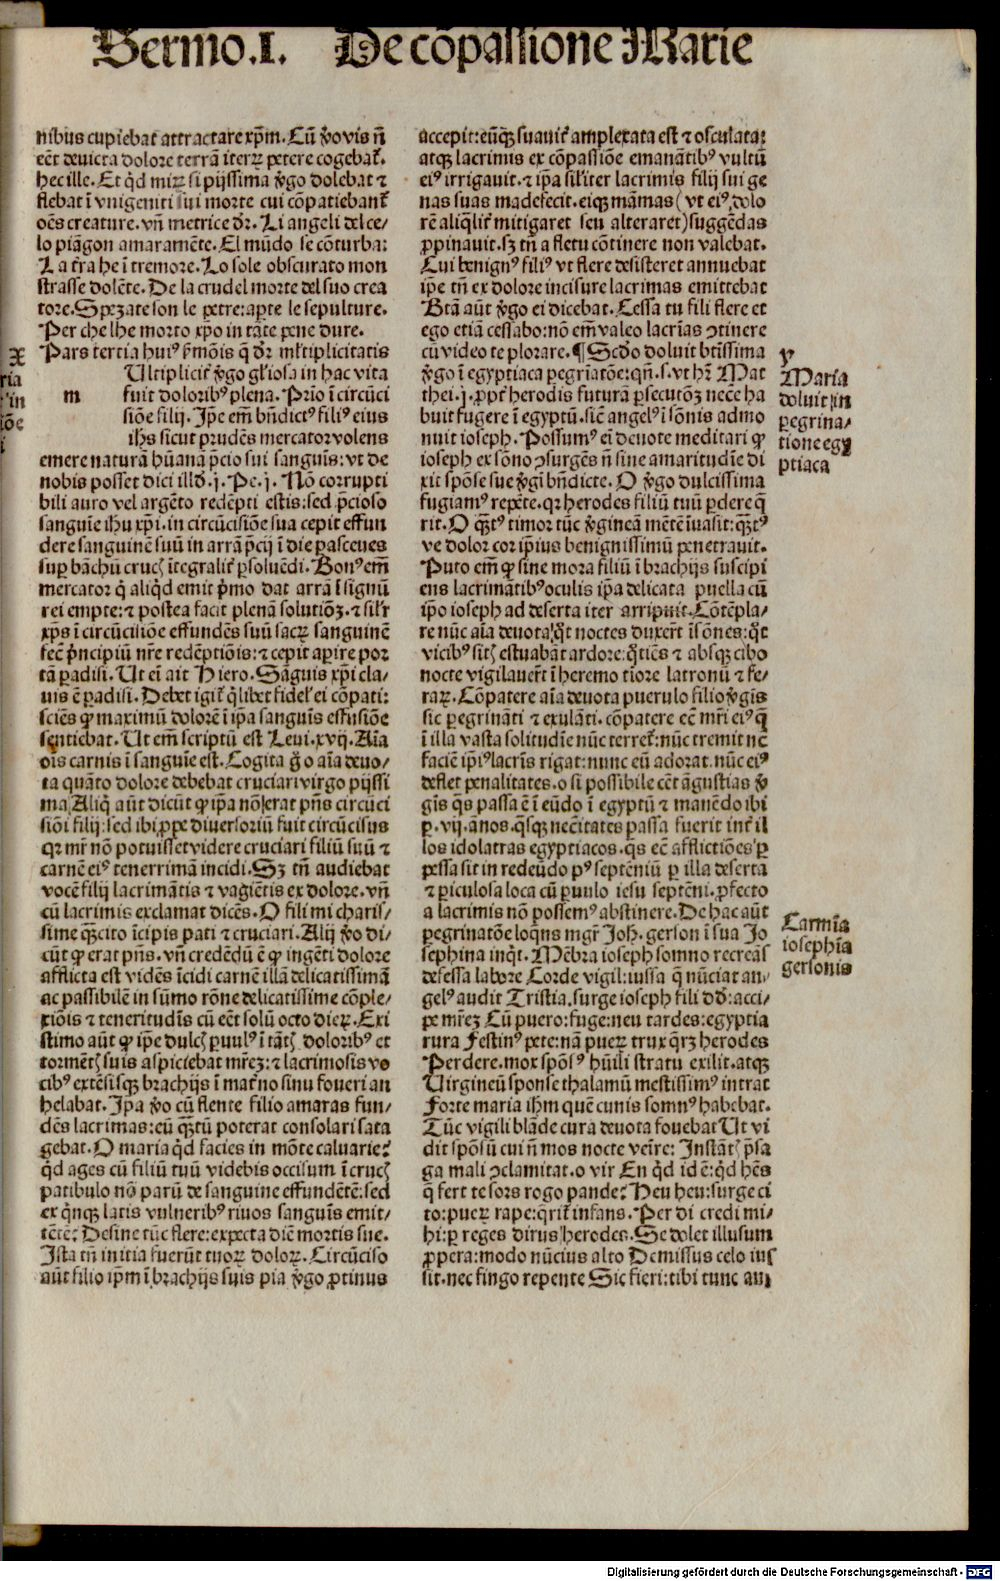 Sermo.I. De cõpassione Marie
nibus cupiebat attractare xp̄m. Cũ v̉o vis ñ
eēt deuicta dolore terrã iteꝝ petere cogebat̃.
hec ille. Et q̇d miꝝ si pijssima v̉go dolebat ⁊
flebat ĩ vnigeniti sui morte cui cõpatiebant̃
oẽs creature. vñ metrice dr̃. Li angeli del ce⸗
lo piãgon amaramẽte. El mũdo se cõturba:
La t̃ra he ĩ tremore. Lo sole obscurato mon
strasse dolẽte. De la crudel morte del suo crea
tore. Spezate son le petre: apte le sepulture.
Per che lhe morto xp̄o in tãte pene dure.
Pars tertia hui⁹ ẜmõis q̃ dr̃ ml̃tiplicitatis
Ultiplicit̃ v̉go gl̃iosa in hac vita
m fuit dolorib⁹ plena. Prĩo ĩ circũci
siõe filij. Ip̃e em̃ bñdict⁹ fili⁹ eius
ihs̃ sicut prudẽs mercator volens
emere naturã hũanã p̃cio sui sanguĩs: vt de
nobis posset dici illd̃. j. Pe. j. Nõ corrupti
bili auro vel argẽto redẽpti estis: sed p̃cioso
sanguĩe ihu xp̃i. in circũcisiõe sua cepit effun
dere sanguinẽ suũ in arrã p̃cij ĩ die pasceues
suꝑ bãchũ cruč ĩtegralit̃ ꝑsoluẽdi. Bon⁹ em̃
mercator q̇ aliq̇d emit p̃mo dat arrã ĩ signũ
rei empte: ⁊ postea facit plenã solutiõꝫ. ⁊ sil̃r
xp̃s ĩ circũcisiõe effundẽs suũ sacꝝ sanguinẽ
fec̃ p̃ncipiũ nr̃e redẽptiõis: ⁊ cepit aꝑire por
tã ꝑadisi. Ut ei ait Hiero. Sãguis xp̃i cla⸗
uis ẽ ꝑadisi. Debet igit̃ q̇libet fidel̃ ei cõpati:
sciẽs ꝙ maximũ dolorẽ ĩ ip̃a sanguĩs effusiõe
sentiebat. Ut em̃ scriptũ est Leui. xvij. Aĩa
oĩs carnis ĩ sanguĩe est. Cogita g̊ o aĩa deuo⸗
ta quãto dolore debebat cruciari virgo pijssi
ma. Aliq̇ aũt dicũt ꝙ ip̃a nõ erat p̃ns circũci
siõi filij: sed ibi ꝓpe diuersoriũ fuit circũcisus
qꝛ mr̃ nõ potuisset videre cruciari filiũ suũ ⁊
carnẽ ei⁹ tenerrimã incidi. Sꝫ tñ audiebat
vocẽ filij lacrimãtis ⁊ vagiẽtis ex dolore. vñ
cũ lacrimis exclamat dicẽs. O fili mi charis⸗
sime q̃ꝫcito ĩcipis pati ⁊ cruciari. Alij v̉o di⸗
cũt ꝙ erat p̃ns. vñ credẽdũ ẽ ꝙ ingẽti dolore
afflicta est vidẽs ĩcidi carnẽ illã delicatissimã
ac passibilẽ in sũmo rõne delicatissime cõple⸗
xiõis ⁊ teneritudĩs cũ eẽt solũ octo dieꝝ. Exi
stimo aũt ꝙ ip̃e dulč ꝑuul⁹ ĩ tãč dolorib⁹ et
tormẽč suis aspiciebat mr̃eꝫ: ⁊ lacrimosis vo
cib⁹ extẽsisqꝫ brachijs ĩ mat̃no sinu foueri an
helabat. Ip̃a v̉o cũ flente filio amaras fun⸗
dẽs lacrimas: eũ q̃ꝫtũ poterat consolari sata
gebat. O maria q̇d facies in mõte caluarie?
q̇d ages cũ filiũ tuũ videbis occisum ĩ cruč
patibulo nõ parũ de sanguine effundẽtẽ: sed
ex q̇nqꝫ latis vulnerib⁹ riuos sanguĩs emit⸗
tẽtẽ? Desine tũc flere: expecta diẽ mortis sue.
Ista tñ initia fuerũt tuoꝝ doloꝝ. Circũciso
aũt filio ip̃m ĩ brachijs suis pia v̉go ꝓtinus
accepit: eũqꝫ suauit̃ amplexata est ⁊ osculata:
atqꝫ lacrimis ex cõpassiõe emanãtib⁹ vultũ
ei⁹ irrigauit. ⁊ ip̃a sil̃iter lacrimis filij sui ge
nas suas madefecit. eiqꝫ mãmas (vt ei⁹ dolo
rẽ aliq̇lit̃ mitigaret seu alteraret) suggẽdas
ꝓpinauit. sꝫ tñ a fletu cõtinere non valebat.
Cui benign⁹ fili⁹ vt flere desisteret annuebat
ip̃e tñ ex dolore incisure lacrimas emittebat
Btã aũt v̉go ei dicebat. Cessa tu fili flere et
ego etiã cessabo: nõ em̃ valeo lacrĩas ꝯtinere
cũ video te plorare. ¶ Scd̃o doluit btĩssima
v̉go ĩ egyptiaca ꝑegrĩatõe: qñ. s. vt hr̃ Mat
thei. j. ꝓpt̃ herodis futurã ꝑsecutõꝫ necẽ ha
buit fugere ĩ egyptũ. sic̃ angel⁹ ĩ sõnis admo
nuit ioseph. Possum⁹ ei deuote meditari ꝙ
ioseph ex sõno ꝯsurgẽs ñ sine amaritudĩe di
xit spõse sue v̉gĩ bñdicte. O v̉go dulcissima
fugiam⁹ repẽte. qꝛ herodes filiũ tuũ ꝑdere q̃
rit. O q̃ꝫt⁹ timor tũc v̉gineã mẽtẽ ĩuasit: q̃ꝫt⁹
ve dolor cor ip̃ius benignissimũ penetrauit.
Puto em̃ ꝙ sine mora filiũ ĩ brachijs suscipi
ens lacrimãtib⁹ oculis ip̃a delicata puella cũ
ip̃o ioseph ad deserta iter arripuit. Cõtẽpla⸗
re nũc aĩa deuota q̊t noctes duxer̃t ĩsõnes: q̊t
vicib⁹ siti estuabãt ardore: q̊tiẽs ⁊ absqꝫ cibo
nocte vigilauer̃t ĩ heremo tiore latronũ ⁊ fe⸗
raꝝ. Cõpatere aĩa deuota puerulo filio v̉gĩs
sic ꝑegrinãti ⁊ exulãti. cõpatere eẽ mr̃i ei⁹ q̃
ĩ illa vasta solitudĩe nũc terret̃: nũc tremit nc̃
faciẽ ip̃i⁹ lacrĩs rigat: nunc eũ adorat. nũc ei⁹
deflet penalitates. o si possibile eẽt ãgustias v̉
gĩs q̃s passa ẽ ĩ eũdo ĩ egyptũ ⁊ manẽdo ibi
ꝑ. vij. ãnos. q̃sqꝫ necĩtates passa fuerit int̃ il
los idolatras egyptiacos. q̃s eẽ afflictiões ꝑ
pessa sit in redeũdo p⁹ septẽniũ ꝑ illa deserta
⁊ ꝑiculosa loca cũ ꝑuulo iesu septẽni. ꝓfecto
a lacrimis nõ possem⁹ abstinere. De hac aũt
ꝑegrinatõe loq̃ns mgr̃ Joh̃. gerson ĩ sua Jo
sephina inq̇t. Mẽbra ioseph somno recreãs
defessa labore Corde vigil: iussa q̃ nũciat an⸗
gel⁹ audit Tristia. surge ioseph fili dd̃: acci⸗
pe mr̃eꝫ Cũ puero: fuge: neu tardes: egyptia
rura Festin⁹ pete: nã pueꝝ trux q̃rꝫ herodes
Perdere. mox spõs⁹ hũili stratu exilit. atqꝫ
Virgineũ sponse thalamũ mestissim⁹ intrat
Forte maria ihm quẽ cunis somn⁹ habebat.
Tũc vigili blãde cura deuota fouebat Ut vi
dit spõsũ cui ñ mos nocte veĩre: Instãč p̃sa
ga mali ꝯclamitat. o vir En q̇d id ẽ: q̇d hẽs
q̃ fert te sors rogo pande? Heu heu: surge ci
to: pueꝝ rape: q̃rit̃ infans. Per di credi mi⸗
hi: ꝑ reges dirus herodes. Se dolet illusum
ꝓpera: modo nũcius alto Demissus celo ius
sit. nec fingo repente Sic fieri: tibi tunc au
y
Maria
doluit in
ꝑegrina⸗
tione egy
ptiaca
Carmĩa
iosephĩa
gersonis
X
ria
in
iõe
i
Digitalisierung gefördert durch die Deutsche Forschungsgemeinschaft - DFG